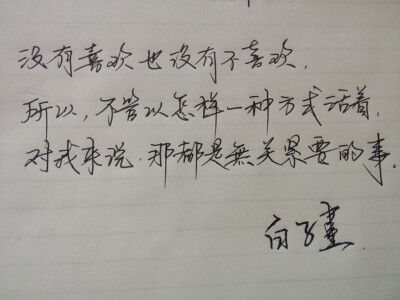 没有喜欢也没有不喜欢，
所以，不管以怎样一种方式活着，
对我来说，那都是無关紧要的事。